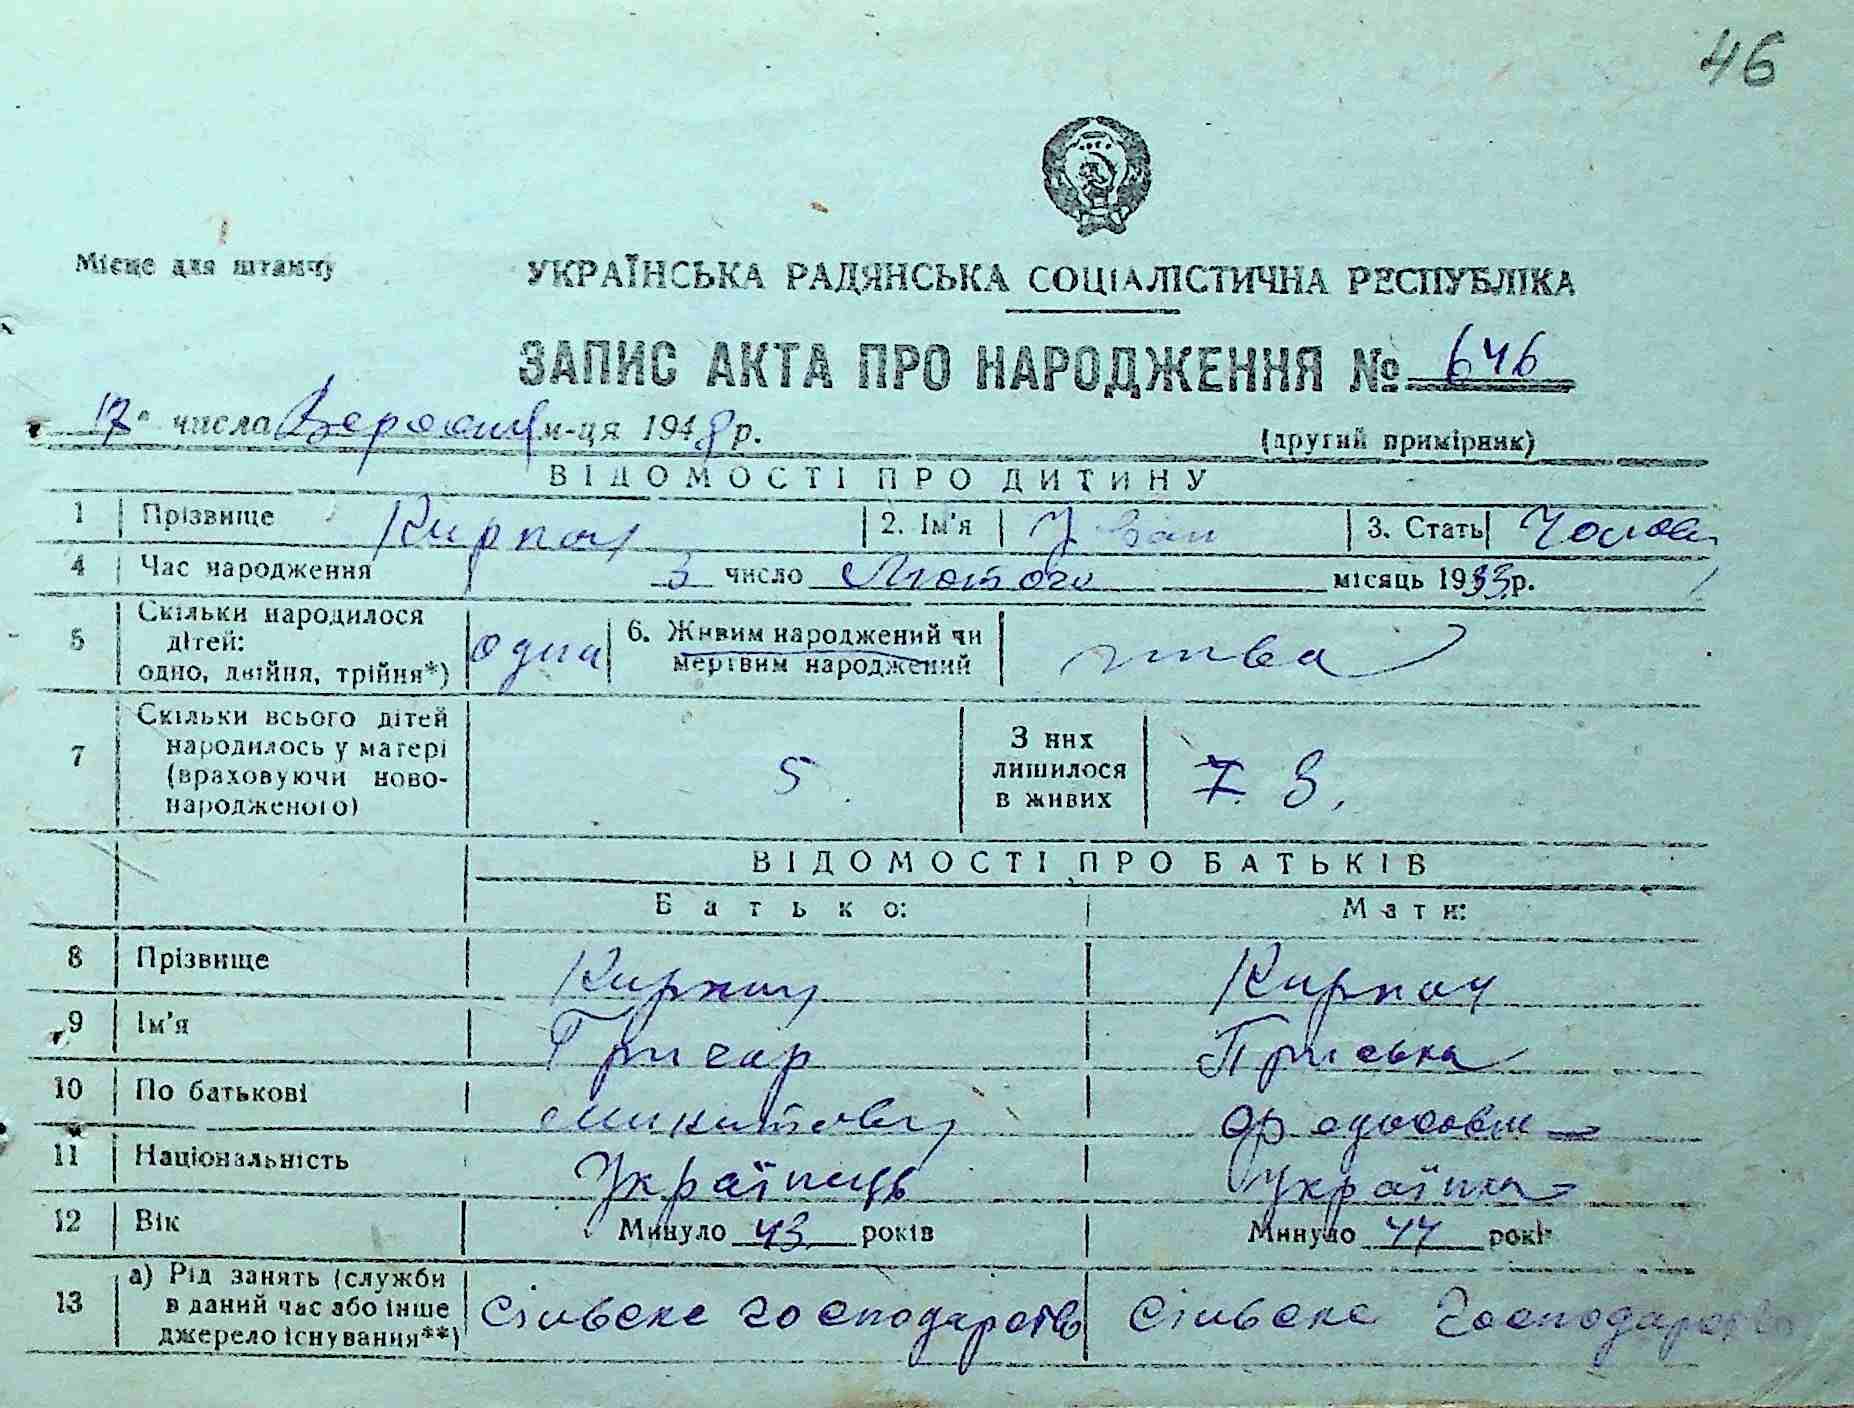 46
Місце для штампу
УКРАЇНСЬКА РАДЯНСЬКА СОЦІАЛІСТИЧНА РЕСПУБЛІКА
ЗАПИС АКТА ПРО НАРОДЖЕННЯ № 646
17 числа Вересня м-ця 1948 р.
(другий примірник)
ВІДОМОСТІ ПРО ДИТИНУ
1 Прізвище Кирпач 2. Ім'я Іван 3. Стать Чолов
4 Час народження 3 число Лютого місяць 1933 р.
5 Скільки народилося дітей: одно, двійня, трійня*) одна 6. Живим народжений чи мертвим народжений жива
7 Скільки всього дітей народилось у матері (враховуючи новонародженого) 5. З них лишилося в живих 7. 3.
ВІДОМОСТІ ПРО БАТЬКІВ
Батько: Мати:
8 Прізвище Кирпач Кирпач
9 Ім'я Григор Приська
10 По батькові Микитович Федосовна
11 Національність Українець Українка
12 Вік Минуло 43 років Минуло 44 рокі
13 а) Рід занять (служби в даний час або інше джерело існування**) Сільске господарство Сільске господарство